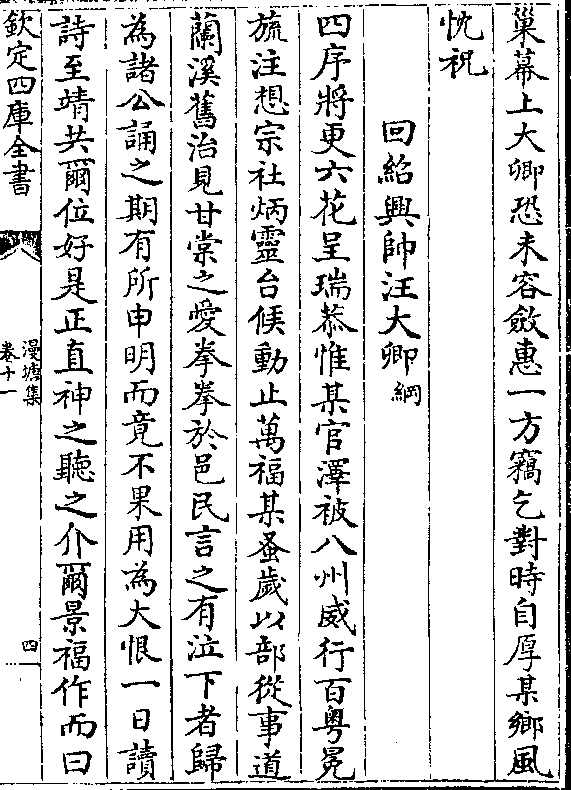 巢幕上大卿恐未容斂惠一方竊乞對時自厚某鄉風
忱祝
回紹興帥汪大卿綱
四序將更六花呈瑞恭惟某官澤被八州威行百粤冕
旒注想宗社炳靈台候動止萬福某蚤歲以部從事道
蘭溪舊治見甘棠之愛拳拳於邑民言之有泣下者歸
為諸公誦之期有所申明而竟不果用為大恨一日讀
詩至靖共爾位好是正直神之聽之介爾景福作而曰
欽定四庫全書
漫塘集
卷十一
四